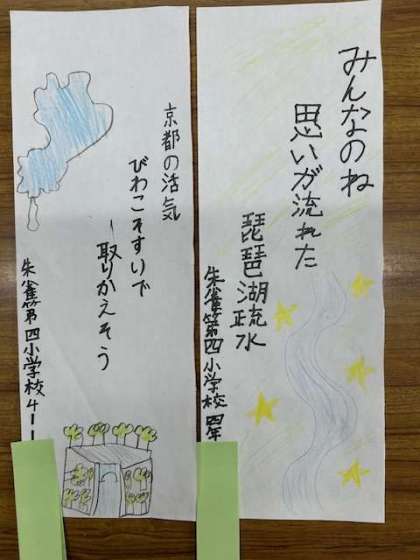 みんなのね
思いが流れた
琵琶湖疏水
朱雀第四小学校四年
京都の活気
びわこそすいで
取りかえそう
朱雀第四小学校4-1